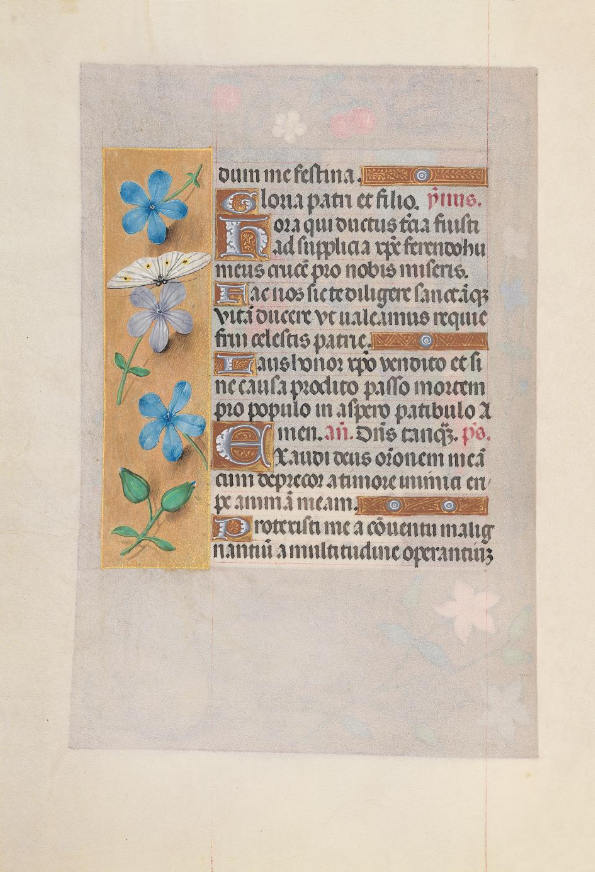 dum me festina.
Gloria patri et filio. ymus.
Hora qui ductus tcia fuisti
ad supplicia xpe ferendo hu
meris crucē pro nobis miseris.
Fac nos sic te diligere sanctāq₃
vitā ducere vt valeamus requie
frui celestis patrie.
Laus honor xpo vendito et si
ne causa prodito passo mortem
pro populo in aspero patibulo A
men. añ. Dñs tanq₃. ps.
EXaudi deus oronem meā
cum deprecor a timore inimici eri
pe animā meam.
Protexisti me a cōuentu malig
nantiū a multitudine operantiu₃